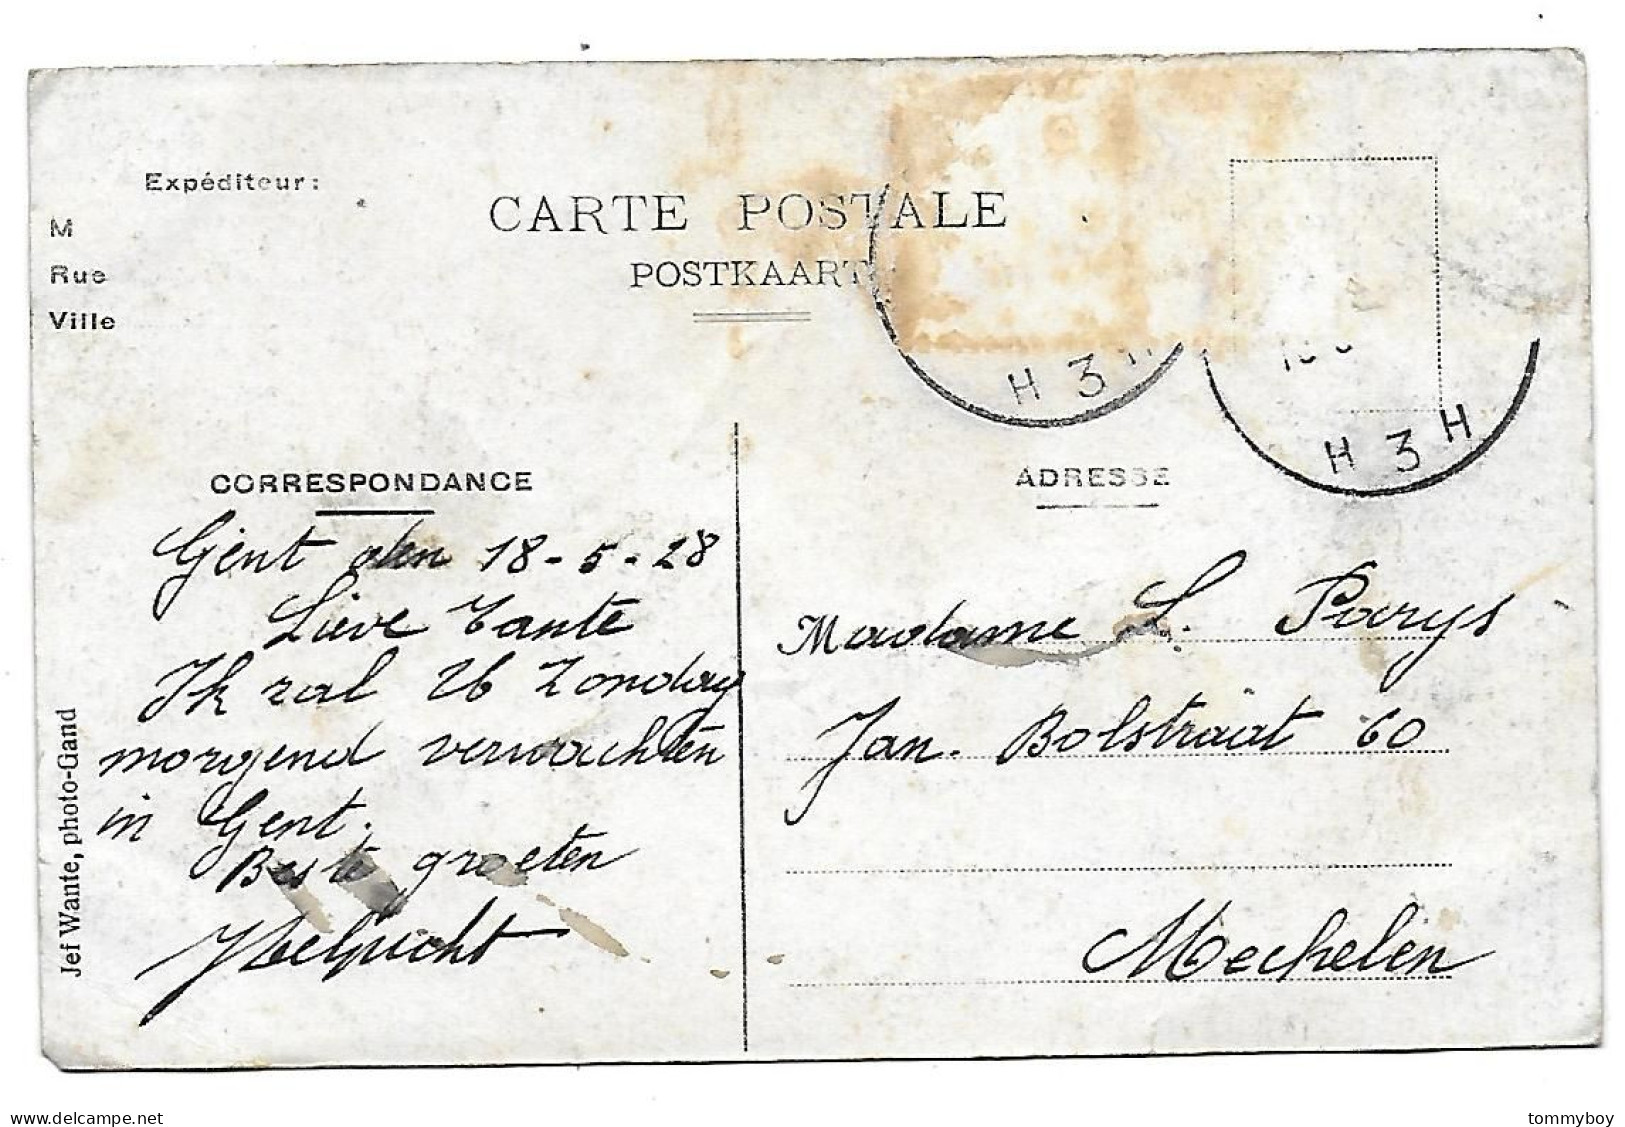 Expéditeur:
M
Rue
Ville
CARTE POSTALE
POSTKAART
H 3 H
H 3 H
CORRESPONDANCE
Gent den 18-5-28
Lieve Tante
Ik zal U Zondag
morgend verwachten
in Gent.
Beste groeten
ADRESSE
Madame L. Parys
Jan. Bolstraat 60
Mechelen
Jef Wante, photo-Gand
www.delcampe.net
tommyboy